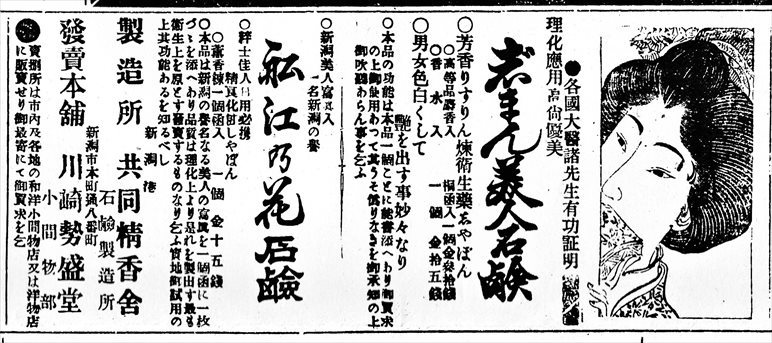 理化應用高尙優美
●各國大醫諸先生有功証明
志まん美人石鹸
○芳香りすりん煉衛生藥志やぼん
○高等品麝香入 桐函入一個金參拾錢
○香水入 一個金拾五錢
○男女色白くして
艶を出す事妙々なり
○本品の功能は本品一個ことに能書添へわり御買求
の上御使用わつて其うそ僞りなきを御承知の上
御吹聽わらん事を乞ふ
○新潟美人寫眞入
一名新潟の譽
舩江乃花石鹸
○紳士佳人日用必携
精眞化粧しやぼん
○薰香煉一個函入 一個金十五錢
○本品は新潟の譽名なる美人の寫眞を一個函に一枚
づゝを添へわり品質は理化上より是れを製出す最も
衞生上を原とす發賣するものなり乞ふ實地御試用の
上其功能あるを知るべし
新潟港
製造所 共同精香舍
石鹸製造所
新潟市本町通八番町
發賣本舖 川崎勢盛堂
小間物部
賣捌所は市内及各地の和洋小間物店又は洋物店
に販賣せり御最寄にて御買求を乞